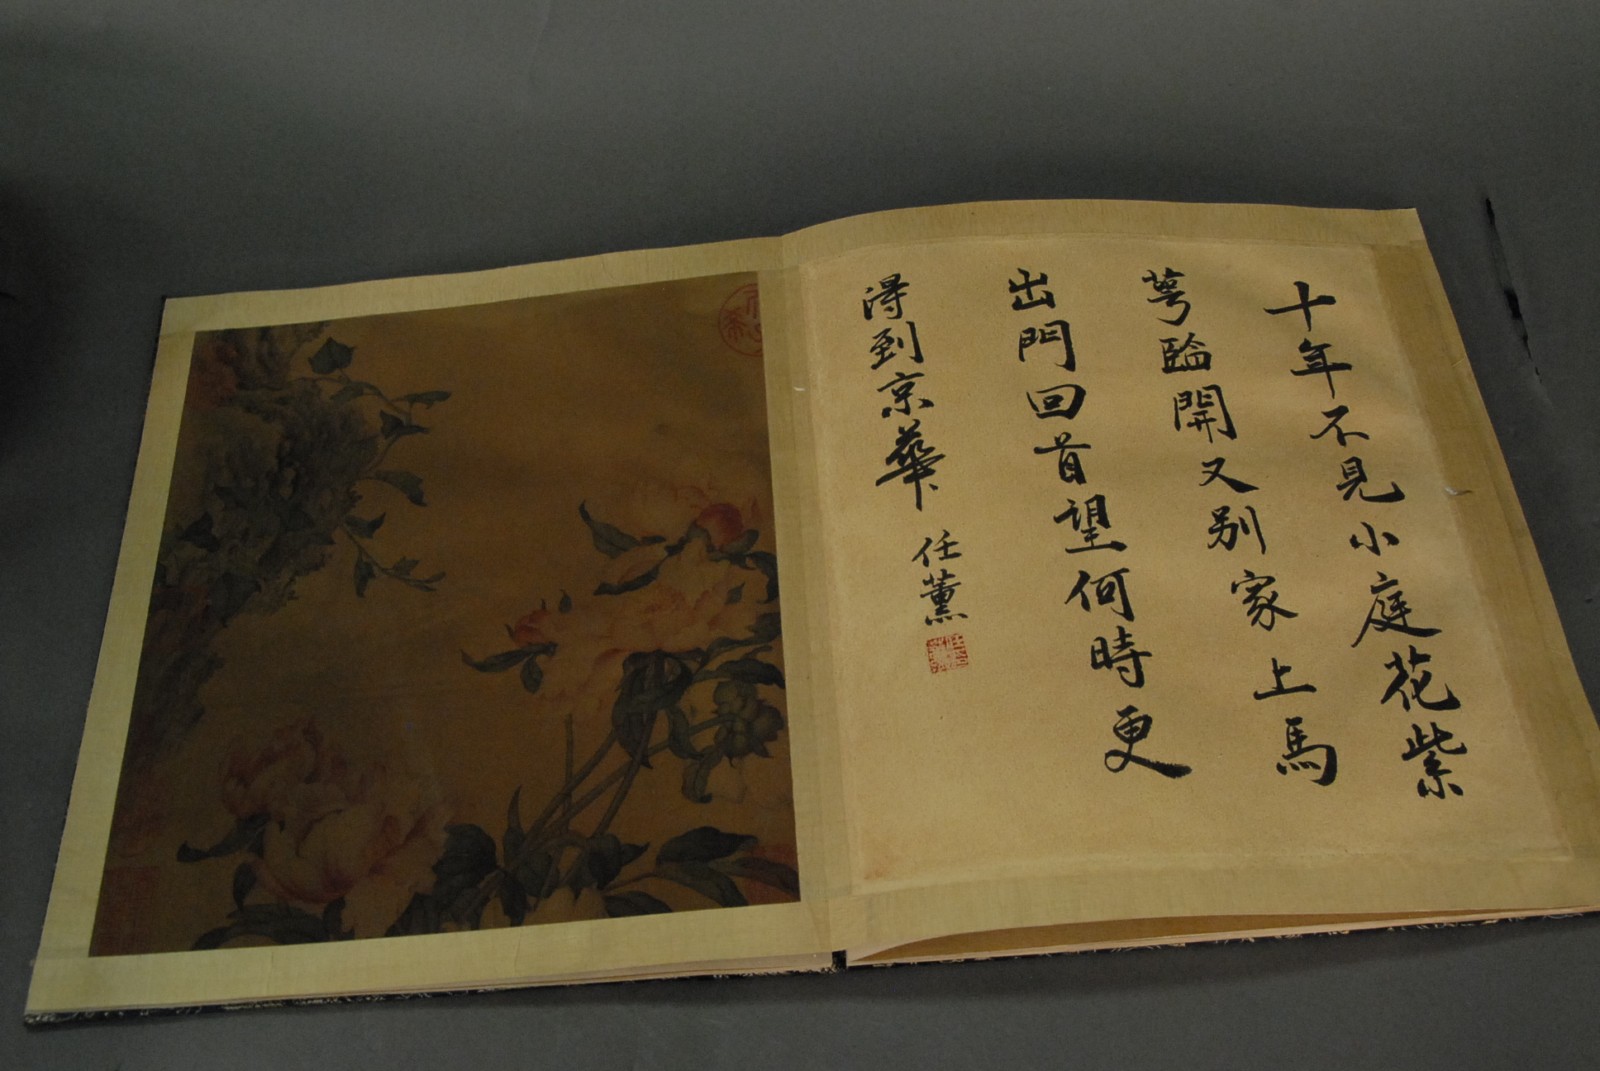 十年不見小庭花紫
萼臨開又别家上馬
出門回首望何時更
得到京華
任薰